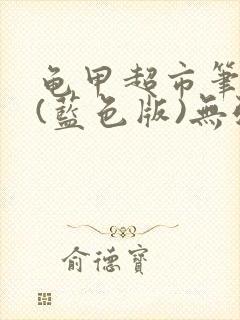 龟甲超市筆
(藍色版)無
俞德寶